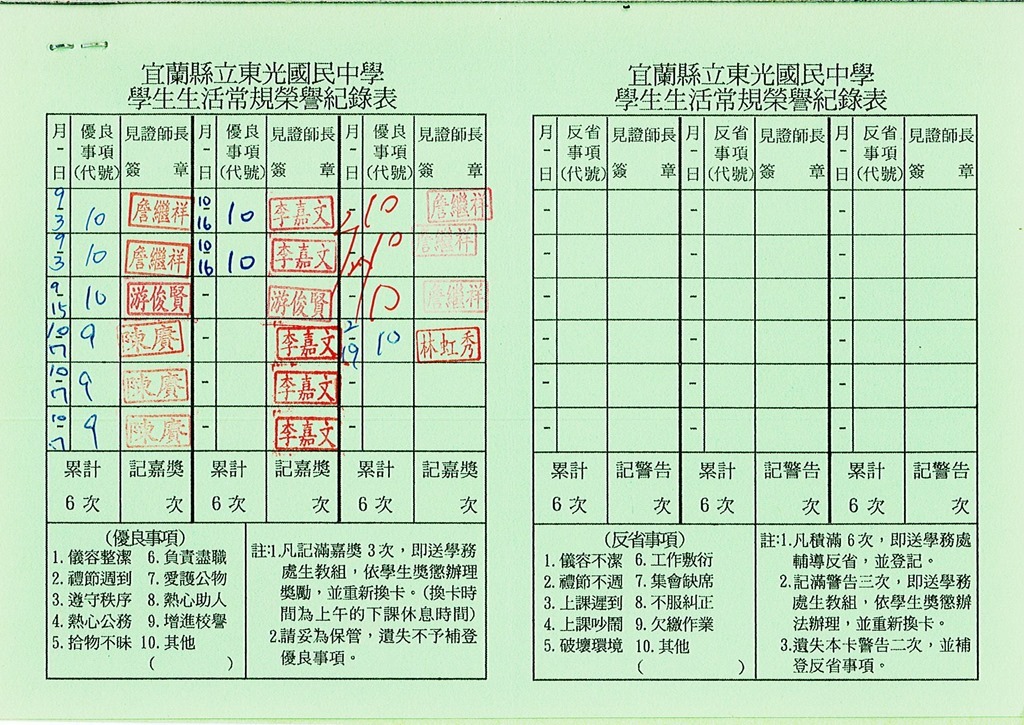 宜蘭縣立東光國民中學
學生生活常規榮譽紀錄表
月-日 優良事項(代號) 見證師長簽章 月-日 優良事項(代號) 見證師長簽章 月-日 優良事項(代號) 見證師長簽章
9-3 10 詹繼祥 10-16 10 李嘉文 - 10 詹繼祥
9-3 10 詹繼祥 10-16 10 李嘉文 - 10 詹繼祥
9-15 10 游俊賢 - 游俊賢 - 10 詹繼祥
10-7 9 陳廣 - 李嘉文 2-19 10 林虹秀
10-7 9 陳廣 - 李嘉文 -
10-7 9 陳廣 - 李嘉文 -
累計 記嘉獎 累計 記嘉獎 累計 記嘉獎
6 次 次 6 次 次 6 次 次
(優良事項)
1. 儀容整潔 6. 負責盡職
2. 禮節週到 7. 愛護公物
3. 遵守秩序 8. 熱心助人
4. 熱心公務 9. 增進校譽
5. 拾物不昧 10. 其他
( )
註:1.凡記滿嘉獎 3次，即送學務
處生教組，依學生獎懲辦理
獎勵，並重新換卡。(換卡時
間為上午的下課休息時間)
2.請妥為保管，遺失不予補登
優良事項。
宜蘭縣立東光國民中學
學生生活常規榮譽紀錄表
月-日 反省事項(代號) 見證師長簽章 月-日 反省事項(代號) 見證師長簽章 月-日 反省事項(代號) 見證師長簽章
- - -
- - -
- - -
- - -
- - -
- - -
累計 記警告 累計 記警告 累計 記警告
6 次 次 6 次 次 6 次 次
(反省事項)
1. 儀容不潔 6. 工作敷衍
2. 禮節不週 7. 集會缺席
3. 上課遲到 8. 不服糾正
4. 上課吵鬧 9. 欠繳作業
5. 破壞環境 10. 其他
( )
註:1.凡積滿 6次，即送學務處
輔導反省，並登記。
2.記滿警告三次，即送學務
處生教組，依學生獎懲辦
法辦理，並重新換卡。
3.遺失本卡警告二次，並補
登反省事項。